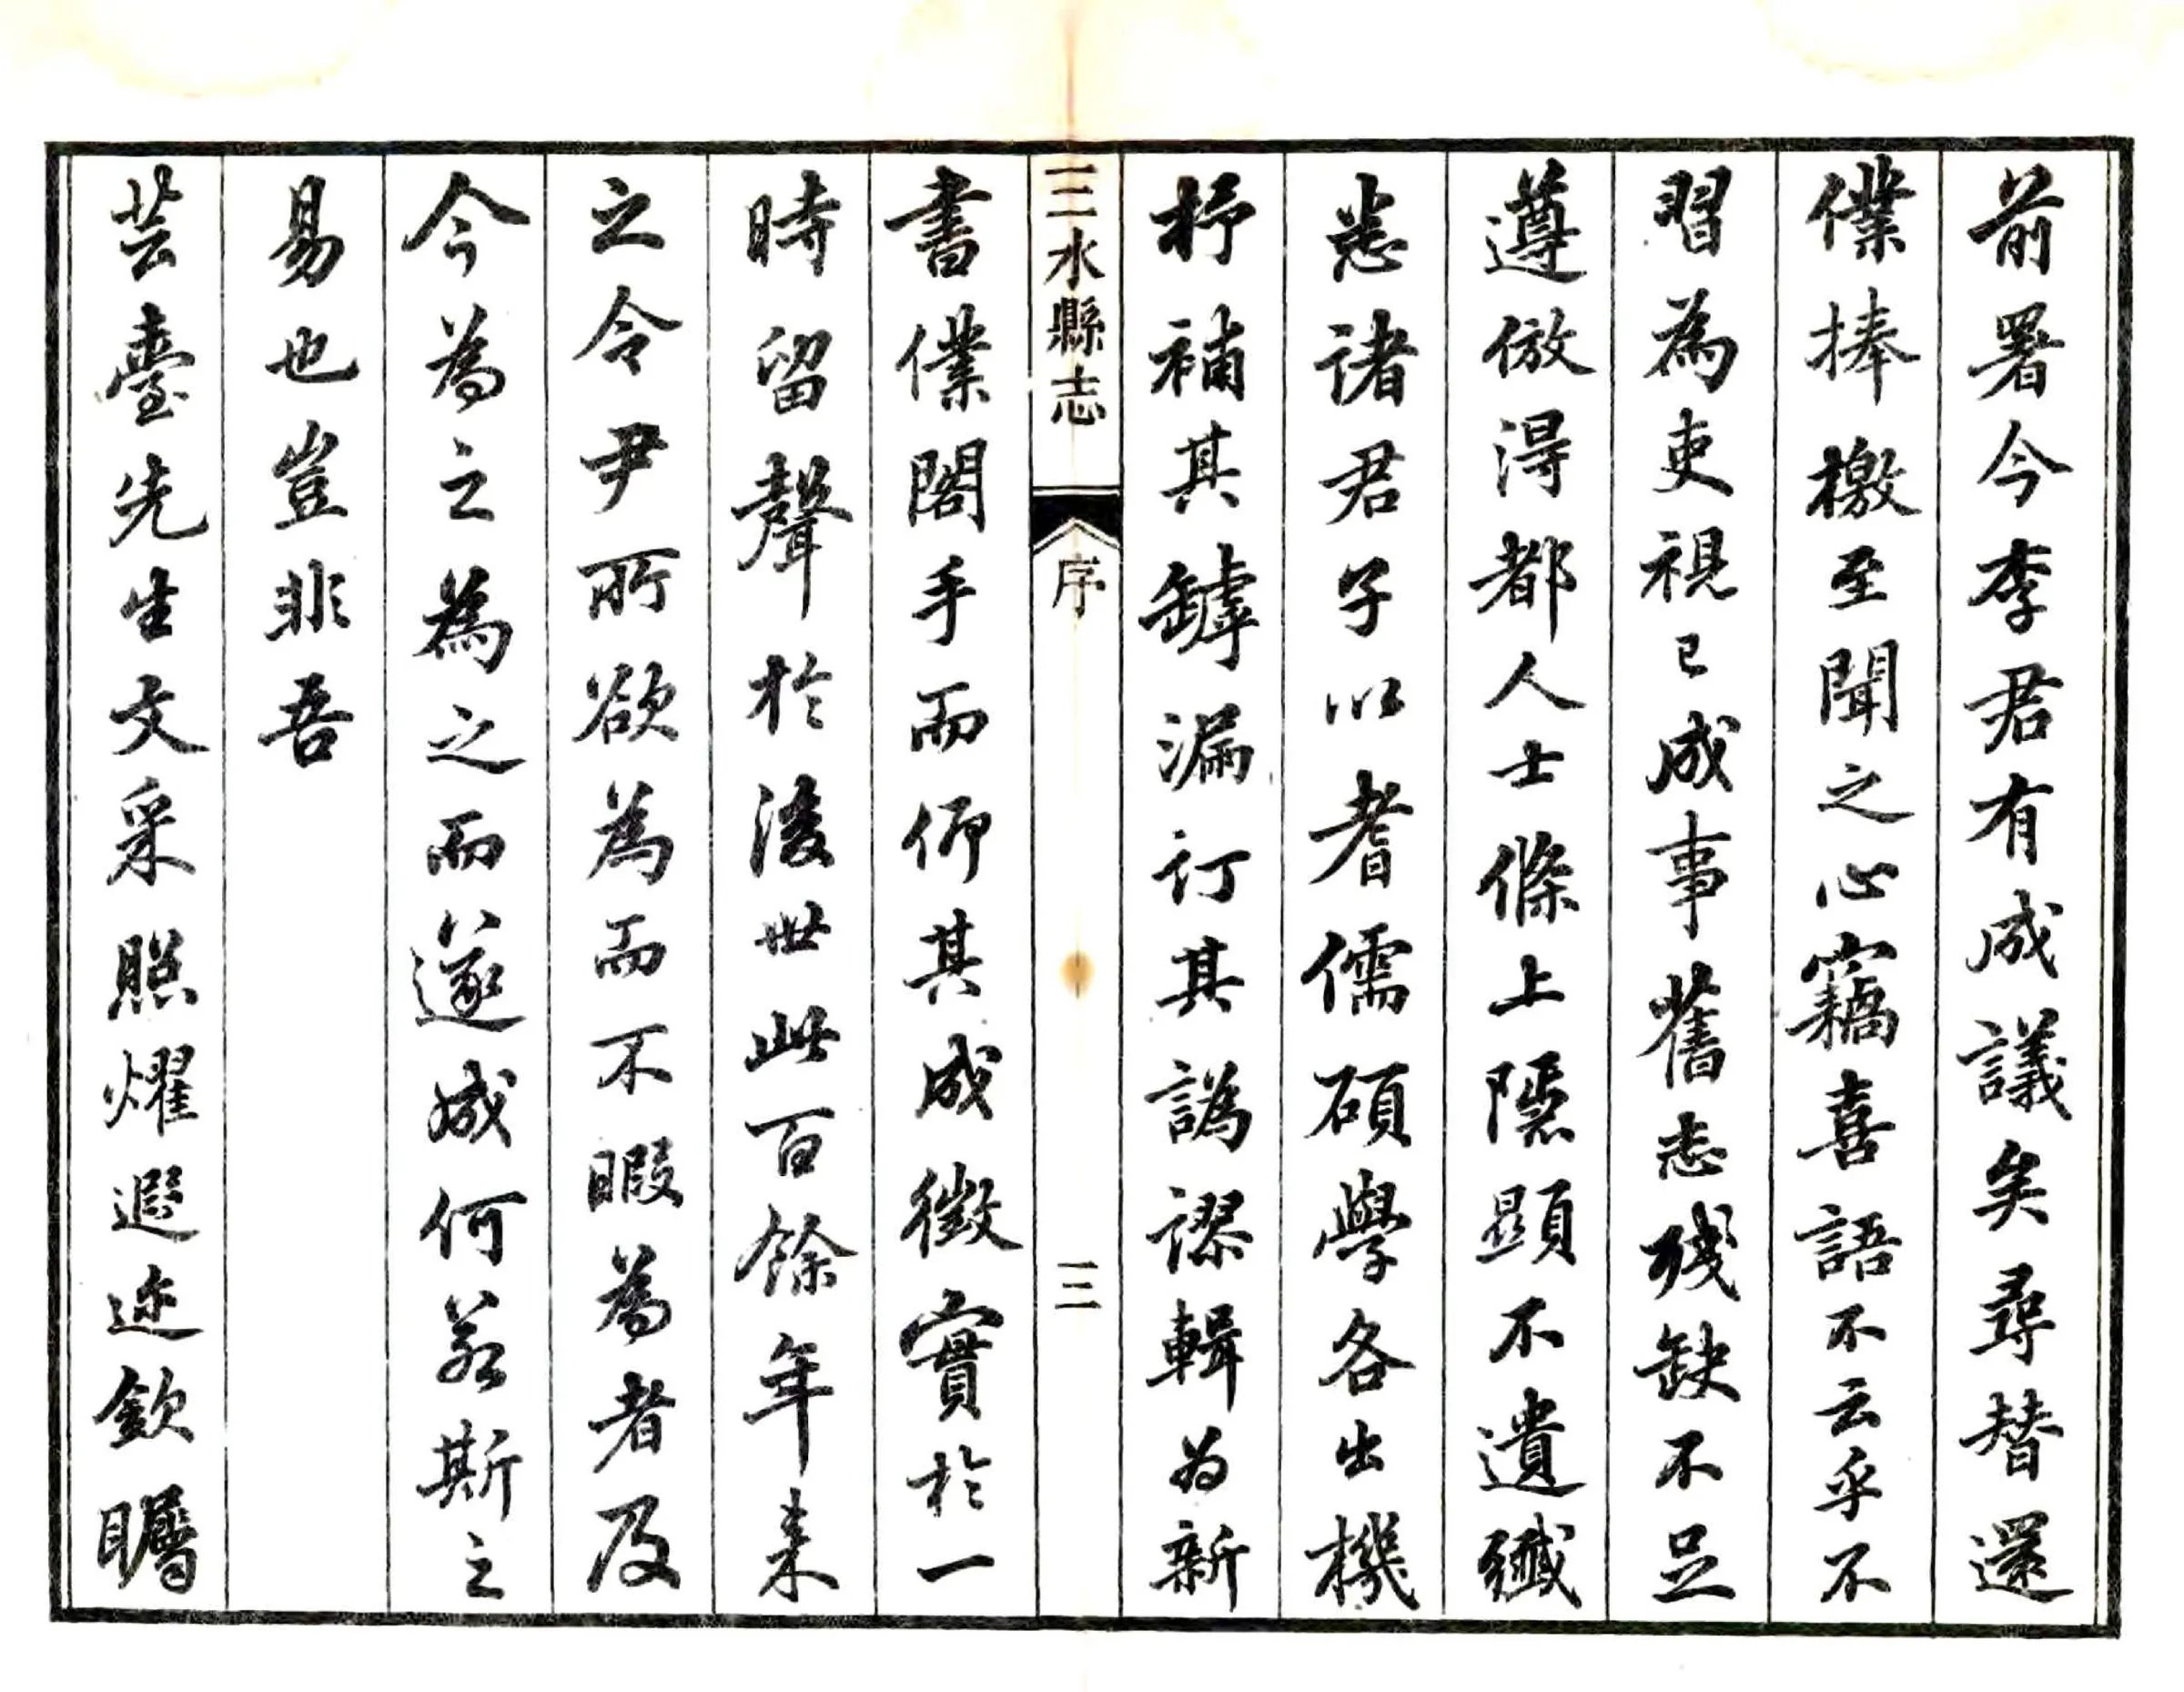 前署今李君有成議矣尋替還
僕捧檄至聞之心竊喜語不云乎不
習為吏視已成事舊志殘缺不足
遵倣得都人士條上隱顯不遺殲
悉諸君子以耆儒碩學各出機
抒補其罅漏訂其譌謬輯为新
三水縣志
序
三
書僕閣手而仰其成徵實於一
時留聲於後世此百餘年来
之令尹所欲為而不暇為者及
今為之為之而遂成何若斯之
易也豈非吾
芸臺先生文采照燿遐迩欽矚